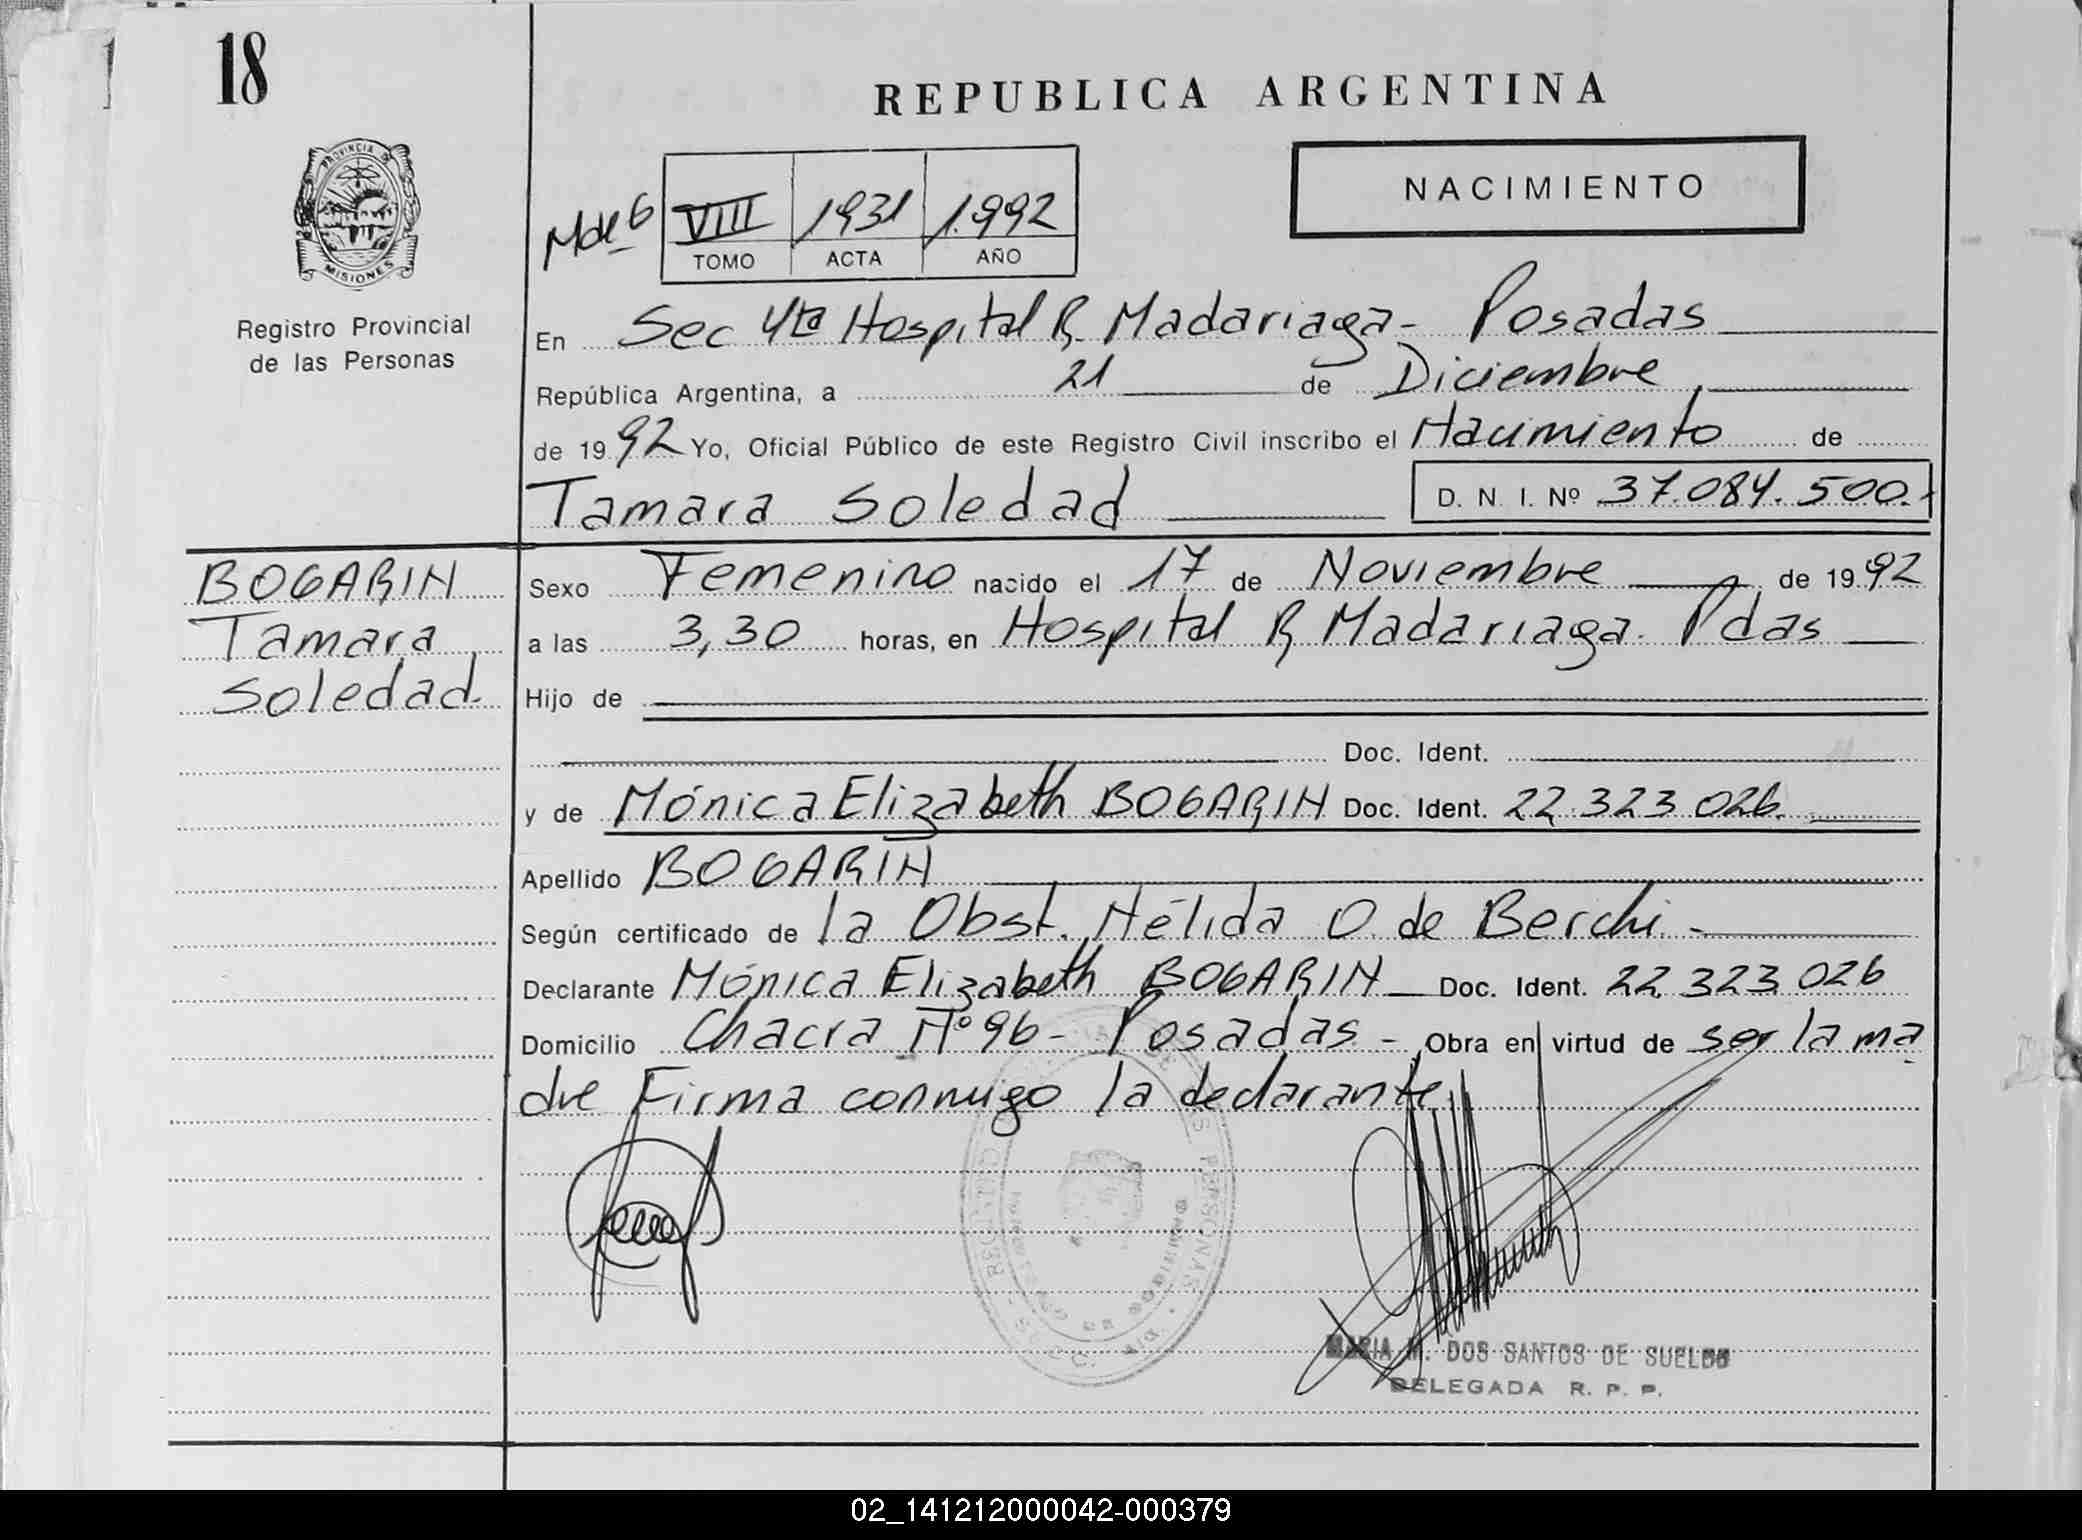 18
REPUBLICA ARGENTINA
PROVINCIA DE
MISIONES
NACIMIENTO
VIII 1931 1.992
TOMO ACTA AÑO
Registro Provincial
de las Personas
En Sec 4ta Hospital R. Madariaga - Posadas
República Argentina, a 21 de Diciembre
de 1992 Yo, Oficial Público de este Registro Civil inscribo el Nacimiento de
Tamara Soledad D. N. I. Nº 37.084.500.-
BOGARIN
Tamara
Soledad.
Sexo Femenino nacido el 17 de Noviembre de 1992
a las 3,30 horas, en Hospital R. Madariaga. Pdas
Hijo de
Doc. Ident.
y de Mónica Elizabeth BOGARIN Doc. Ident. 22.323.026.
Apellido BOGARIN
Según certificado de la Obst. Nélida O. de Berchi -
Declarante Mónica Elizabeth BOGARIN Doc. Ident. 22.323.026
Domicilio Chacra Nº 96 - Posadas - Obra en virtud de ser la ma
dre Firma conmigo la declarante
MARIA M. DOS SANTOS DE SUELDO
DELEGADA R. P. P.
02_141212000042-000379